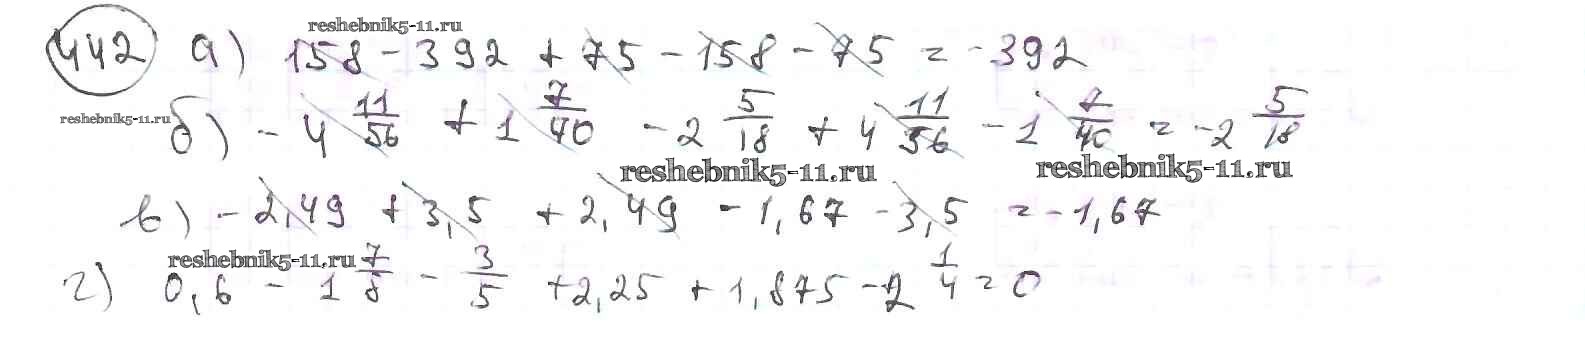 reshebnik5-11.ru
442 а) 158 - 392 + 75 - 158 - 75 = -392
reshebnik5-11.ru
б) - 4 11/56 + 1 7/40 - 2 5/18 + 4 11/56 - 1 7/40 = -2 5/18
reshebnik5-11.ru reshebnik5-11.ru
в) - 2,49 + 3,5 + 2,49 - 1,67 - 3,5 = -1,67
reshebnik5-11.ru
г) 0,6 - 1 7/8 - 3/5 + 2,25 + 1,875 - 2 1/4 = 0